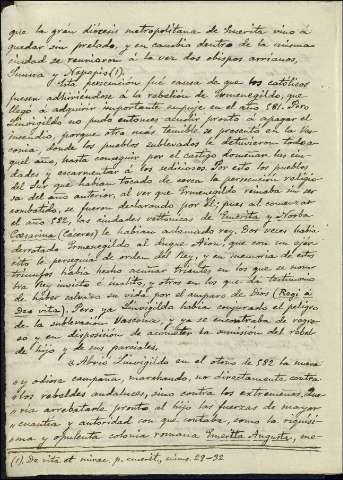 que la gran diócesis metropolitana de Emerita vino á
quedar sin prelado, y en cambio dentro de la misma
ciudad se reunieron á la vez dos obispos arrianos,
Sunna y Nepopis (1).
Esta persecución fué causa de que los católicos
fuesen adhiriéndose á la rebelión de Ermenegildo, que
llegó á adquirir importante empuje en el año 581. Pero
Liuvigildo no pudo entonces acudir pronto á apagar el
incendio, porque otro más temible se presentó en la Vas-
conia, donde los pueblos sublevados le detuvieron todo a-
quel año, hasta conseguir por el castigo dominar las ciu-
dades y escarmentar á los sediciosos. Por esto los pueblos
del Sur que habían tocado de cerca la persecución religio-
sa del año anterior, al ver que Ermenegildo reinaba sin ser
combatido, se fueron declarando por él; pues al comenzar
el año 582, las ciudades vettónicas de Emerita y Norba
Caesarina (Cáceres) le habían aclamado rey. Dos veces había
derrotado Ermenegildo al duque Aion, que con un ejér-
cito le perseguía de orden del Rey, y en memoria de estos
triunfos había hecho acuñar trientes en los que se nom-
bra Rey invicto é ínclito, y otros en los que da testimonio
de haber salvado su vida por el amparo de Dios (Regi á
Deo vita). Pero ya Liuvigildo había conjurado el peligro
de la sublevación Vascona, y ya se encontraba de regre-
so y en disposición de acometer la sumisión del rebel-
de hijo y de sus parciales.
Abrió Liuvigildo en el otoño de 582 la nueva
y odiosa campaña, marchando, no directamente contra
los rebeldes andaluces, sino contra los extremeños. Que-
ría arrebatarle pronto al hijo las fuerzas de mayor
cuantía y autoridad con que contaba, como la riquísi-
ma y opulenta colonia romana Emerita Augusta, me-
(1). De vita et mirac. p. emerit., núms. 29-32